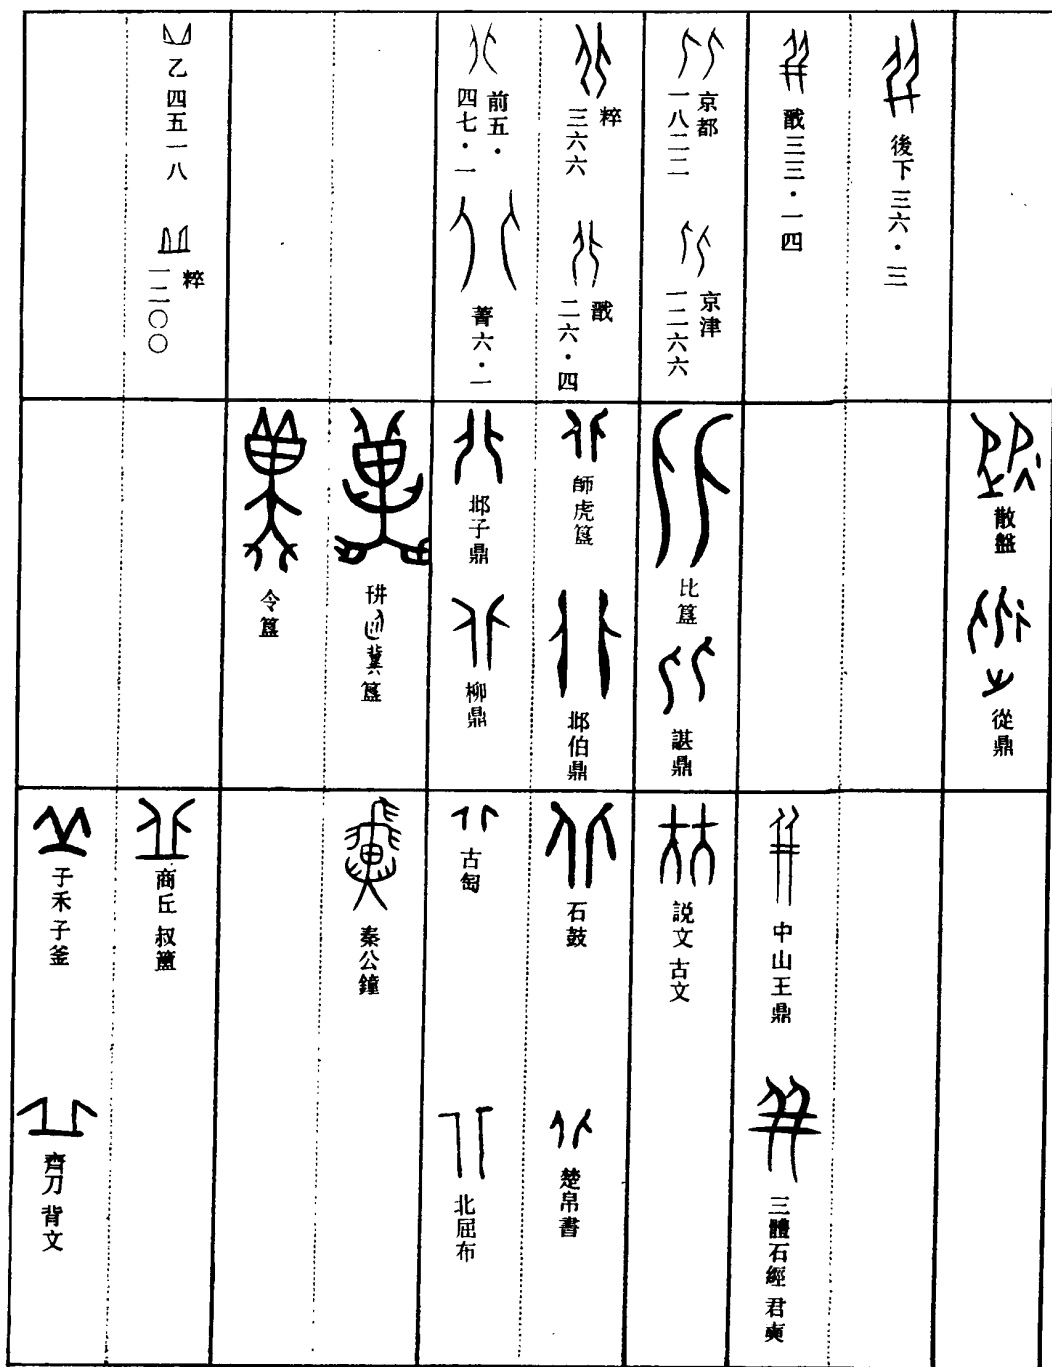 後下三六・三
戩三三・一四
京都
一八二二
京津
一二六六
粹
三六六
戩
二六・四
前五・
四七・一
菁六・一
乙四五一八
粹
一二〇〇
散盤
從鼎
比簋
諶鼎
師虎簋
邶伯鼎
邶子鼎
柳鼎
令簋
中山王鼎
三體石經君奭
説文古文
石鼓
楚帛書
古匋
北屈布
秦公鐘
商丘叔簠
子禾子釜
齊刀背文